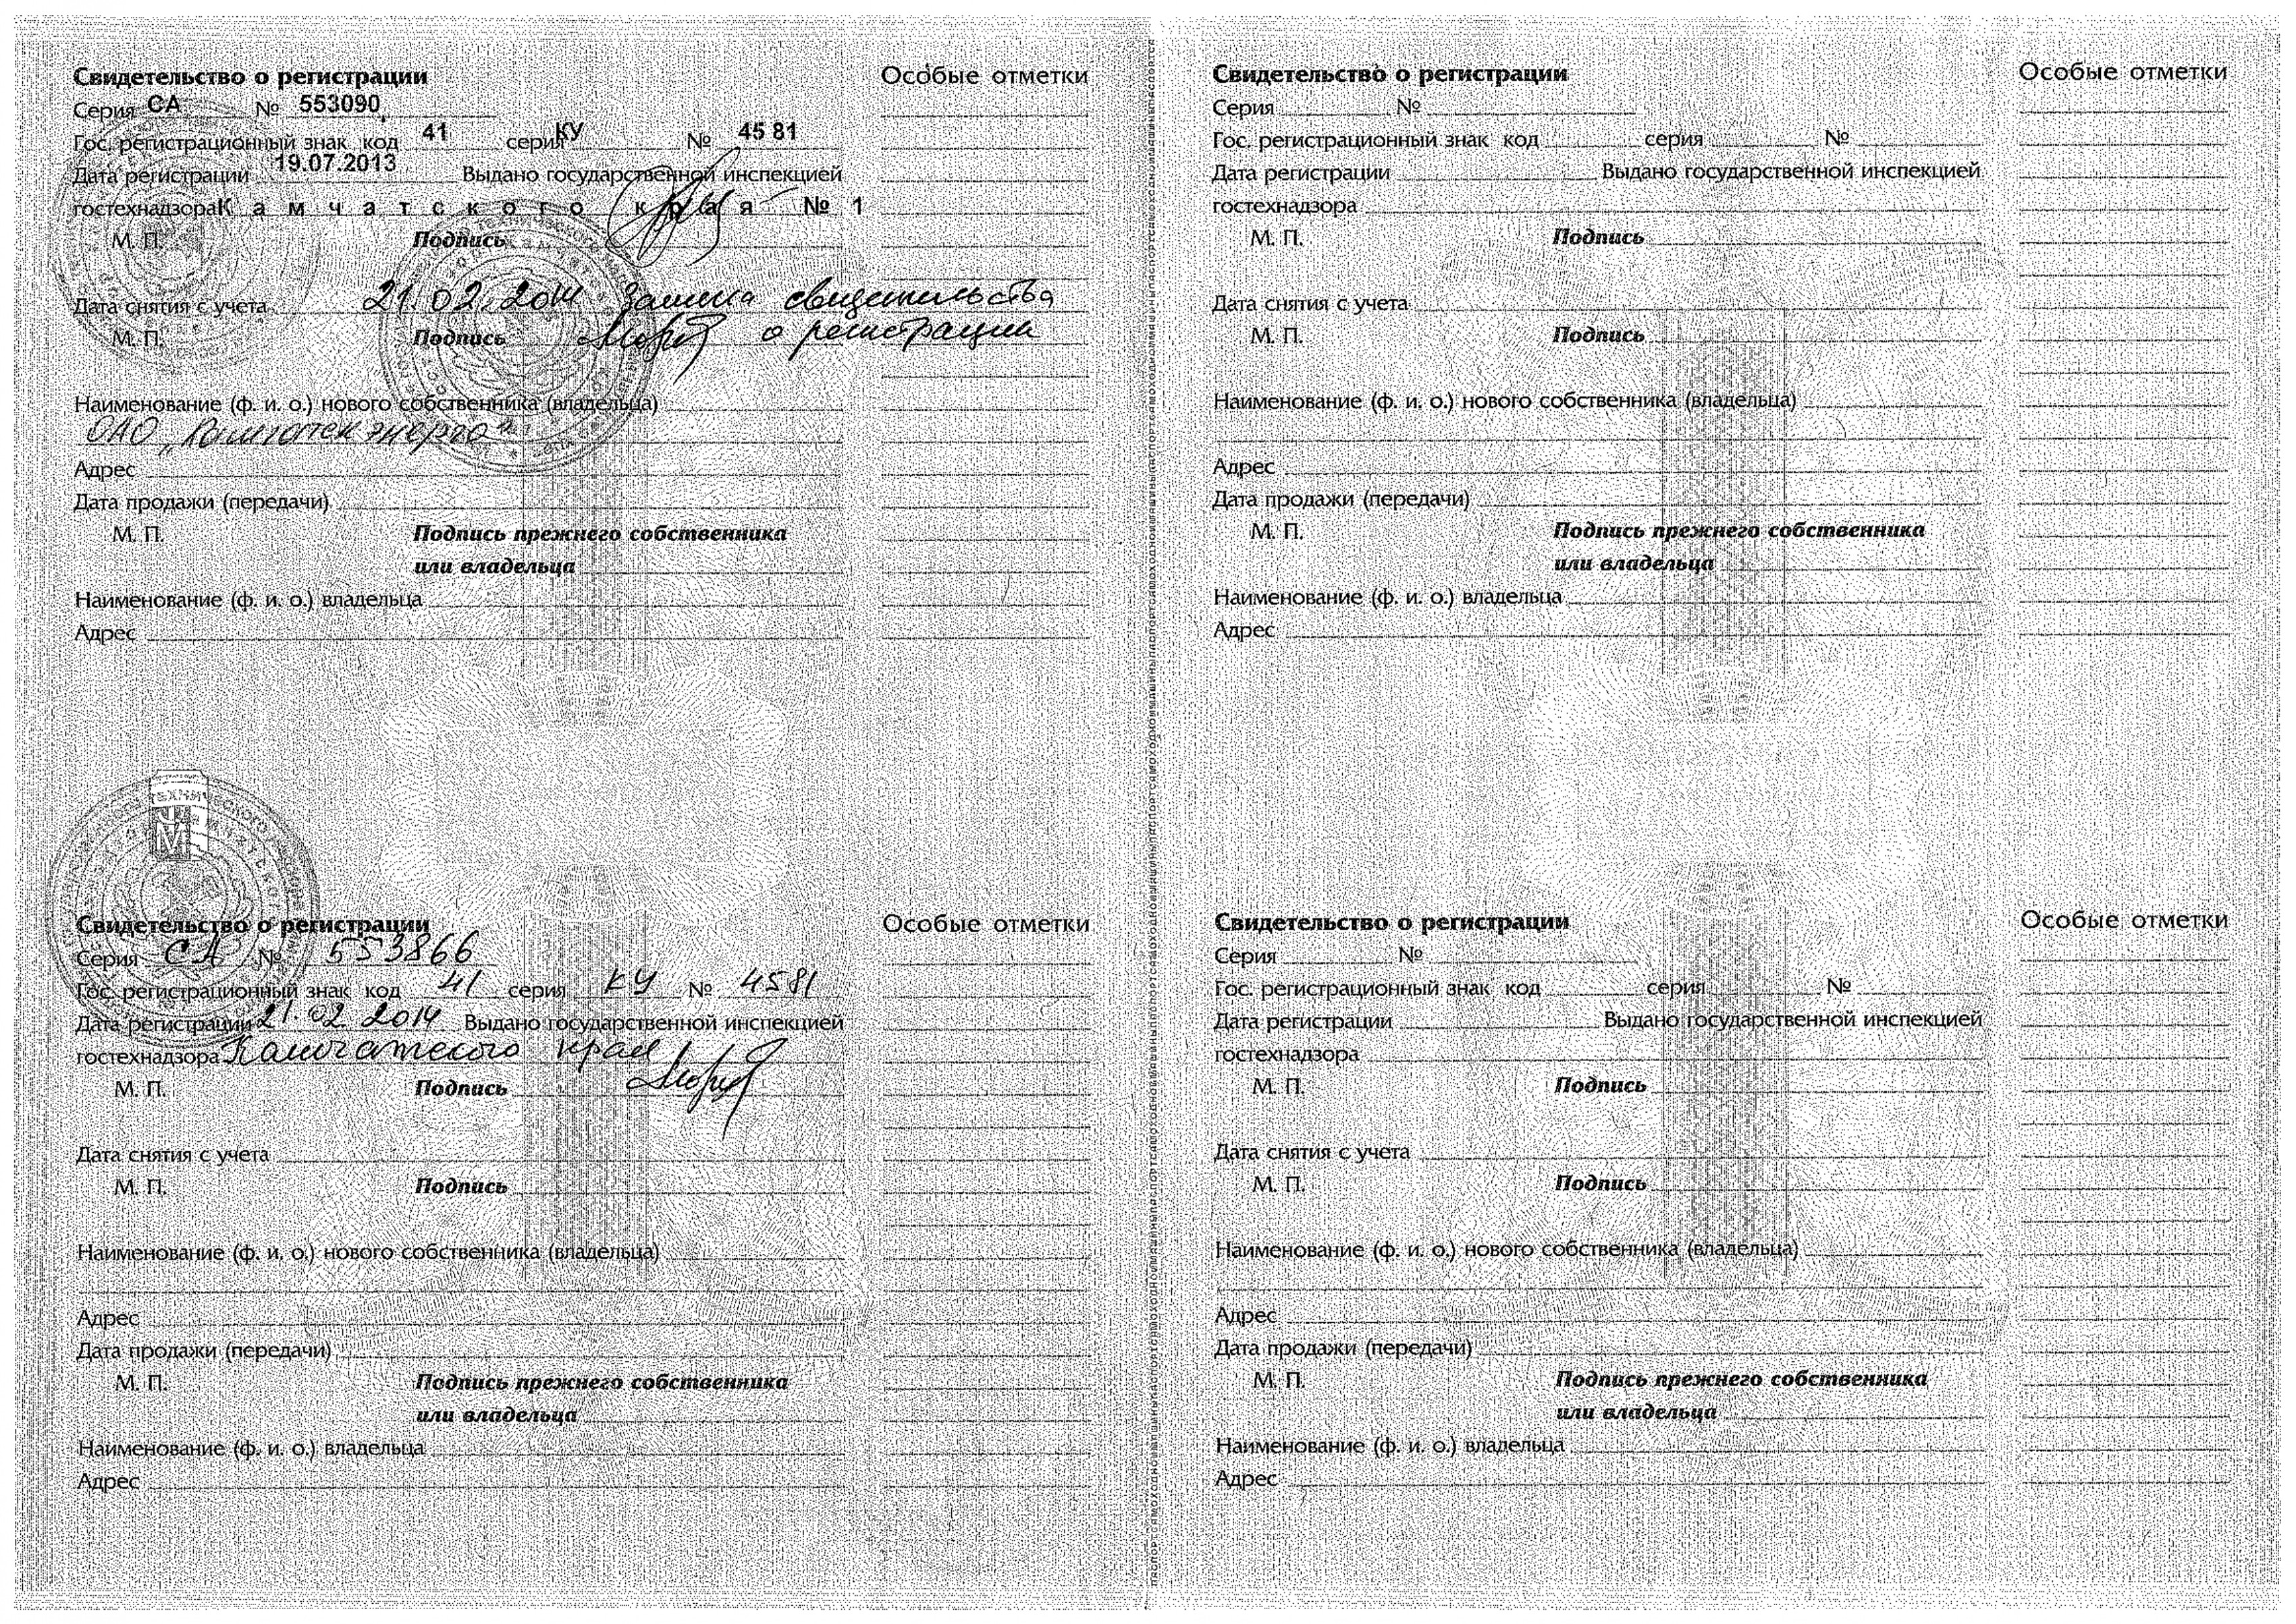 Свидетельство о регистрации
Особые отметки
Серия СА № 553090
Гос. регистрационный знак код 41 серия КУ № 45 81
Дата регистрации 19.07.2013 Выдано государственной инспекцией
гостехнадзора Камчатского края № 1
М. П. Подпись
Дата снятия с учета 21.02.2014 Замена свидетельства
М. П. Подпись о регистрации
Наименование (ф. и. о.) нового собственника (владельца)
ОАО "Камчатскэнерго"
Адрес
Дата продажи (передачи)
М. П. Подпись прежнего собственника
или владельца
Наименование (ф. и. о.) владельца
Адрес
Свидетельство о регистрации
Особые отметки
Серия №
Гос. регистрационный знак код серия №
Дата регистрации Выдано государственной инспекцией
гостехнадзора
М. П. Подпись
Дата снятия с учета
М. П. Подпись
Наименование (ф. и. о.) нового собственника (владельца)
Адрес
Дата продажи (передачи)
М. П. Подпись прежнего собственника
или владельца
Наименование (ф. и. о.) владельца
Адрес
Свидетельство о регистрации
Особые отметки
Серия СА № 553866
Гос. регистрационный знак код 41 серия КУ № 4581
Дата регистрации 21.02.2014 Выдано государственной инспекцией
гостехнадзора Камчатского края
М. П. Подпись
Дата снятия с учета
М. П. Подпись
Наименование (ф. и. о.) нового собственника (владельца)
Адрес
Дата продажи (передачи)
М. П. Подпись прежнего собственника
или владельца
Наименование (ф. и. о.) владельца
Адрес
Свидетельство о регистрации
Особые отметки
Серия №
Гос. регистрационный знак код серия №
Дата регистрации Выдано государственной инспекцией
гостехнадзора
М. П. Подпись
Дата снятия с учета
М. П. Подпись
Наименование (ф. и. о.) нового собственника (владельца)
Адрес
Дата продажи (передачи)
М. П. Подпись прежнего собственника
или владельца
Наименование (ф. и. о.) владельца
Адрес